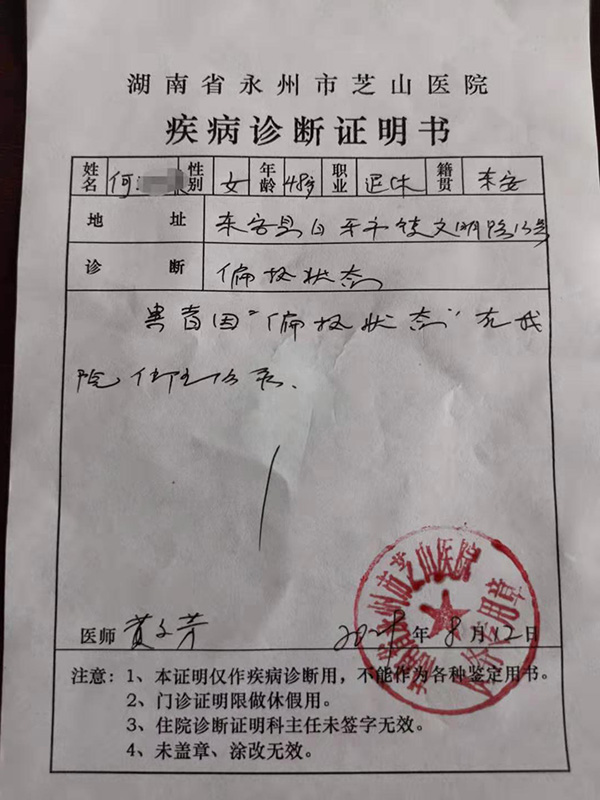 湖南省永州市芝山医院
疾病诊断证明书
姓名 何 性别 女 年龄 48岁 职业 退休 籍贯 东安
地址 东安县白牙市镇文明路
诊断 偏执状态
患者因“偏执状态”在我
院住
医师 黄 芳 年8月12日
湖南省永州市芝山医院
专用章
注意：1、本证明仅作疾病诊断用，不能作为各种鉴定用书。
2、门诊证明限做休假用。
3、住院诊断证明科主任未签字无效。
4、未盖章、涂改无效。